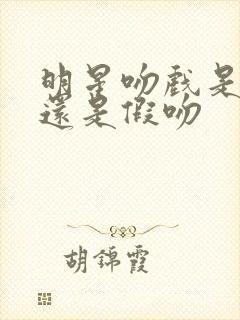 明星吻戲是
還是假吻
胡錦霞